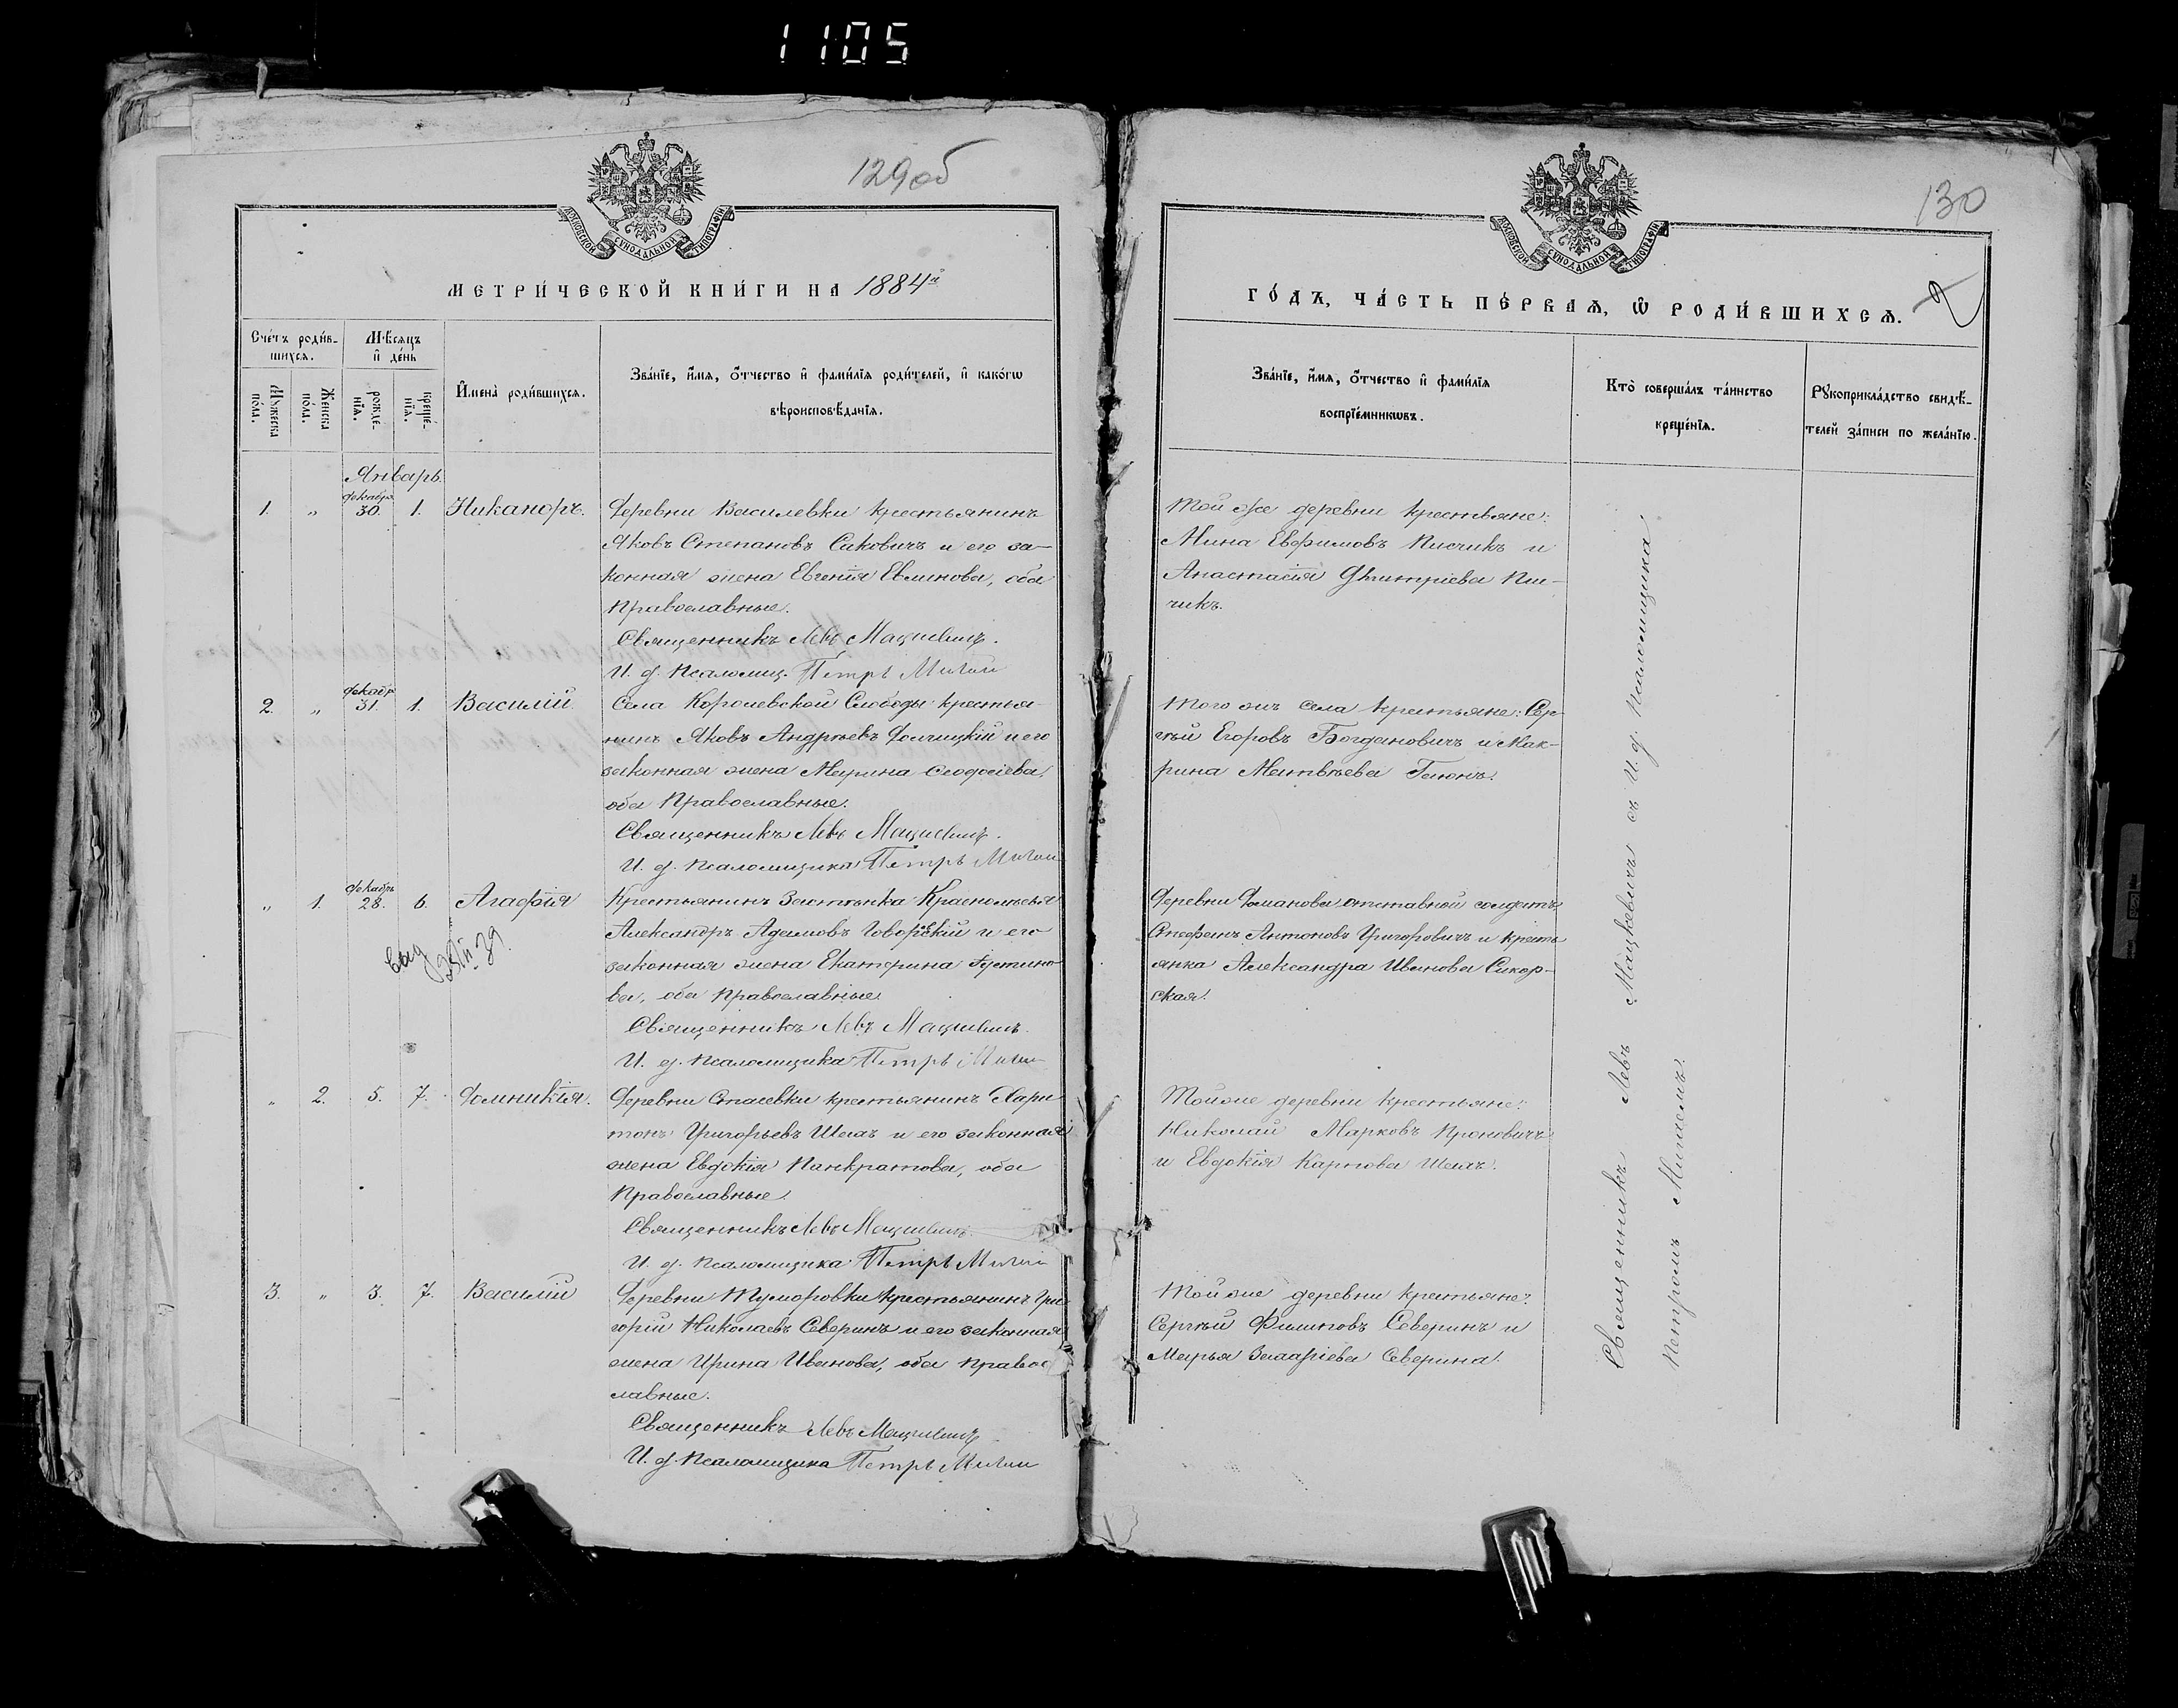 1105
129об
МОСКОВСКОЙ СѴНОДАЛЬНОЙ ТИПОГРАФІИ
МЕТРИ́ЧЕСКОЙ КНИ́ГИ НА 1884й
Сче́тъ роди́в-
шихсѧ.
Мѣ́сѧцъ
и҆ де́нь
Мꙋ́жеска
по́ла.
Же́нска
по́ла.
рожде́-
нїѧ.
креще́-
нїѧ.
И҆мена̀ роди́вшихсѧ.
Зва́нїе, и҆́мѧ, ѻ҆́тчество и҆ фами́лїѧ роди́телей, и҆ како́гѡ
вѣроисповѣ́данїѧ.
Январь.
1. " декабря 30. 1. Никаноръ. Деревни Василевки крестьянинъ
Яковъ Степановъ Сиковичъ и его за-
конная жена Евгенія Евминова, оба
Православные.
Священникъ Левъ Мацкевичъ.
И. д. Псаломщ. Петръ
2. " декабр 31. 1. Василій. Села Королевской Слободы крестья-
нинъ Яковъ Андреевъ и его
законная жена Марина Ѳеодосіева,
оба Православные.
Священникъ Левъ Мацкевичъ.
И. д. Псаломщика Петръ
" 1. декабрь 28. 6. Агафія Крестьянинъ Застѣнка
Александръ Адамовъ Говорскій и его
законная жена Екатерина Іустино-
ва, оба Православные.
Священникъ Левъ Мацкевичъ.
И. д. Псаломщика Петръ
" 2. 5. 7. Домникія. Деревни Стасевки крестьянинъ Хари
тонъ Григорьевъ Шахъ и его законная
жена Евдокія Панкратова, оба
Православные.
Священникъ Левъ Мацкевичъ.
И. д. Псаломщика Петръ
3. " 3. 7. Василій Деревни Тумаровки крестьянинъ Гри
горій Николаевъ Северинъ и его законная
жена Ирина Иванова, оба Право
славные.
Священникъ Левъ Мацкевичъ
И. д. Псаломщика Петръ
130
МОСКОВСКОЙ СѴНОДАЛЬНОЙ ТИПОГРАФІИ
ГО́ДЪ, ЧА́СТЬ ПЕ́РВАѦ, Ѡ҆ РОДИ́ВШИХСѦ. 2
Зва́нїе, и҆́мѧ, ѻ҆́тчество и҆ фами́лїѧ
воспрїе́мникѡвъ.
Кто̀ соверша́лъ та́инство
креще́нїѧ.
Рꙋкоприкла́дство свидѣ́-
телей за́писи по жела́нїю.
Той же деревни крестьяне:
Мина Евфимовъ Писчикъ и
Анастасія Дмитріева Пи-
чикъ.
Того жъ села крестьяне: Сер-
гѣй Егоровъ Богдановичъ и Мак-
рина Матвѣева Гаюнъ.
Деревни Романова отставной солдатъ
Стефанъ Антоновъ Григоровичъ и крестъ
янка Александра Иванова Сикор-
ская.
Той же деревни крестьяне:
Николай Марковъ Проновичъ
и Евдокія Карпова Шахъ.
Той же деревни крестьяне:
Сергѣй Филиповъ Северинъ и
Марья Захаріева Северина.
Священникъ Левъ Мацкевичъ съ И. д. Псаломщика
Петромъ